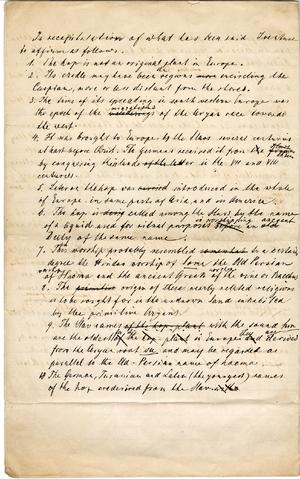 In recapitulation of what has been said I venture
to affirm as follows.
1. The hop is not an original plant in Europe.
2. Its cradle may have been the regions more encircling the
Caspian, more or less distant from the shores.
3. The time of its spreading in south western Europe was
the epoch of the migrations of the Aryan race towards
the west.
4. It was brought to Europe by the Slavs several centuries
at least before Christ. The Germans received it from
by conquering their lands of the latter in the VII and VIII
centuries.
5. Later the hop was carried introduced in the whole
of Europe, in some parts of Asia, and in America.
6. The hop is called among the Slavs by the name
of a liquid used for ritual purposes in worshiping an ancient
Deity of the same name.
7. This worship probably resembled somewhat to a certain
degree the Hindu worship of Soma the Old Persian
worship of Haoma and the ancient Greek of the wine or Bacchus
8. The primitive origin of these nearly related religions
is to be sought for in the unknown land inhabited
by the primitive Aryans.
9. The Slav names of the hop plant with the sound
are the oldest of the hop plant in Europe and are derived
from the Aryan root su and may be regarded as
parallel to the Old-Persian name of haoma.
10. The German, Turanian and Latin (the youngest) names
of the hop are derived from the Slav